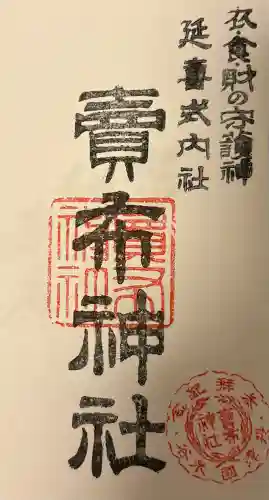 衣・食・財の守護神
延喜式内社
賣布神社